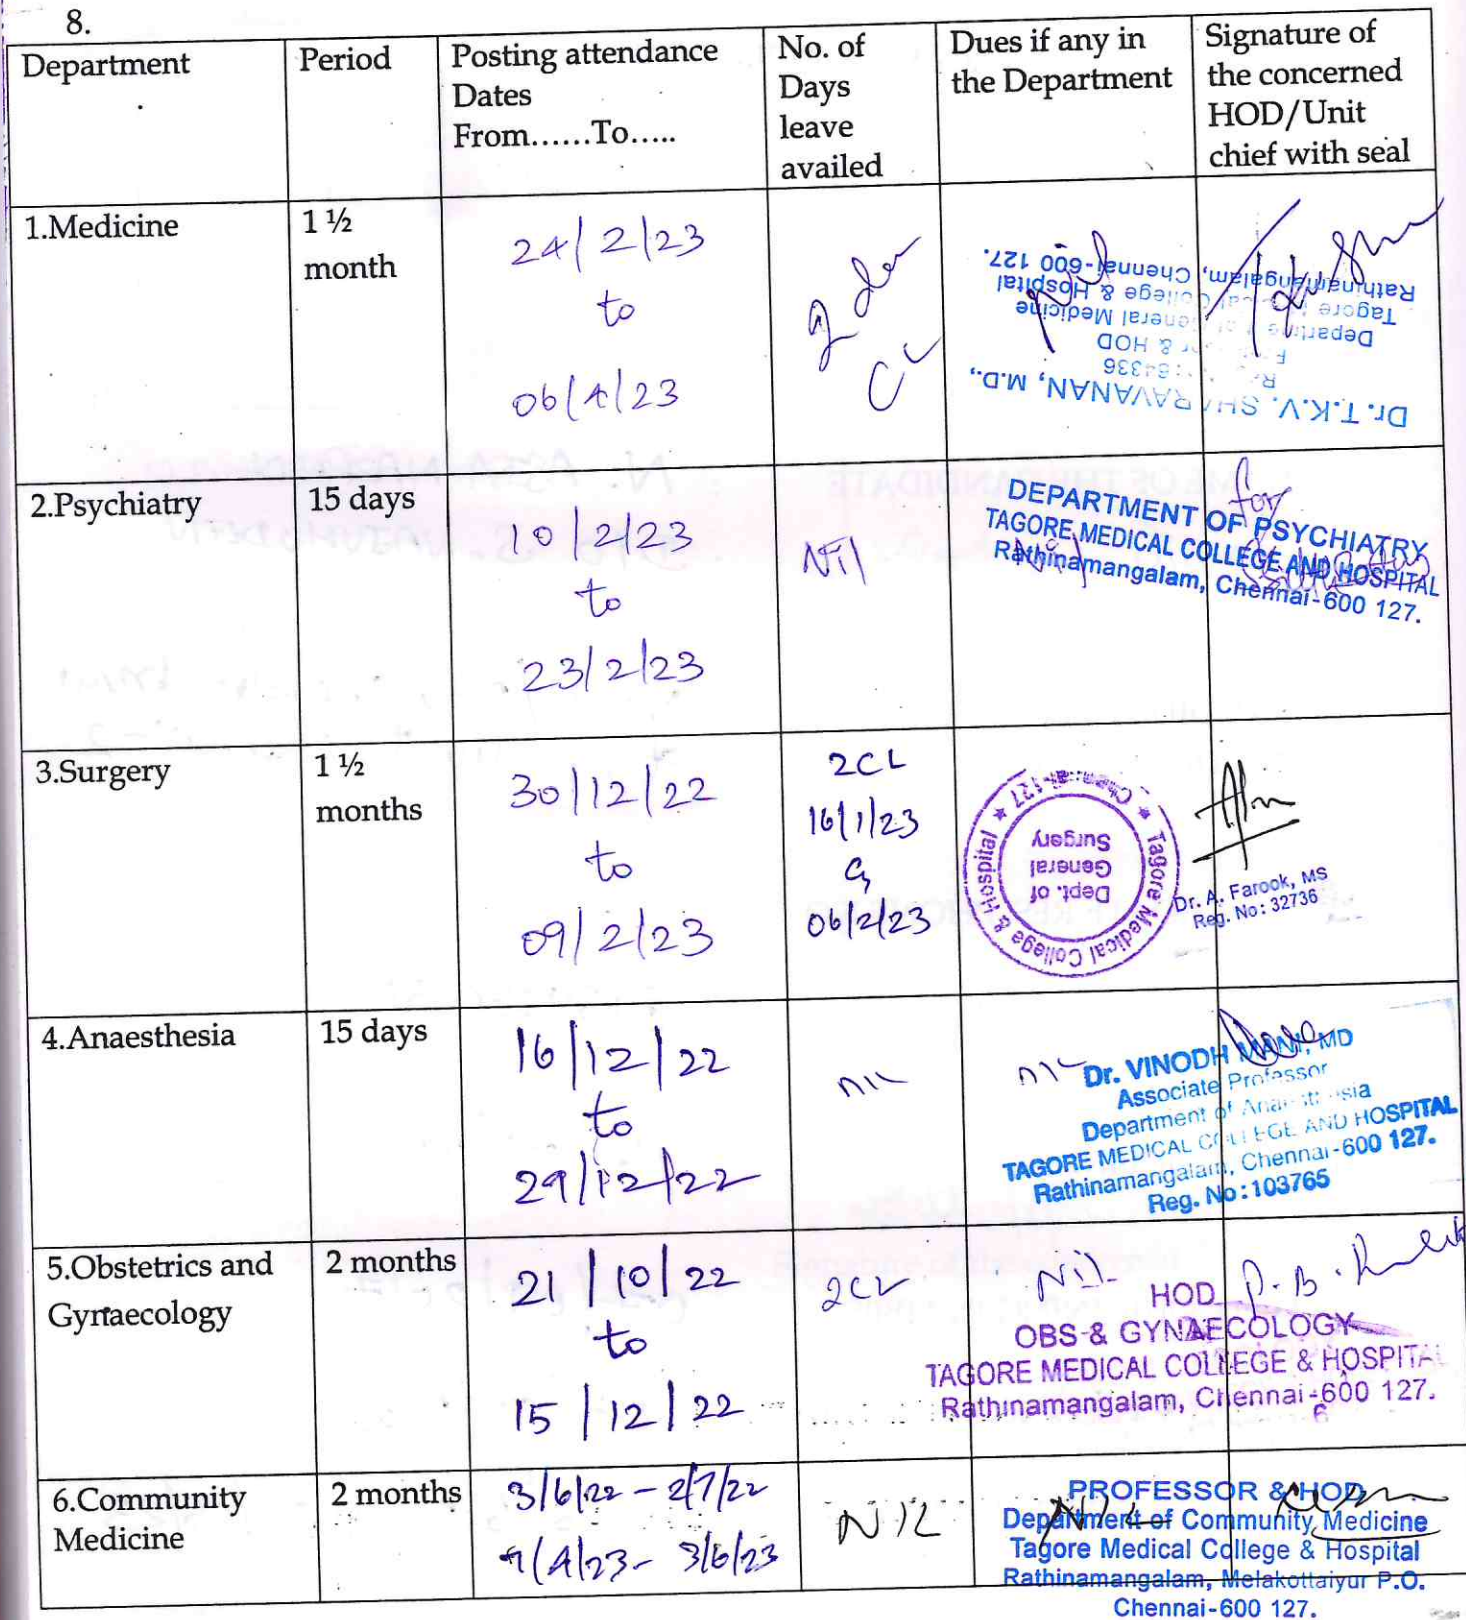 8.
Department
Period
Posting attendance
Dates
From......To.....
No. of
Days
leave
availed
Dues if any in
the Department
Signature of
the concerned
HOD/Unit
chief with seal
1.Medicine
1 ½
month
24/2/23
to
06/4/23
2
CL
Nil
Dr.T.K.V. SHARAVANAN, M.D.,
& HOD
General Medicine
Tagore Medical College & Hospital
Rathinamangalam, Chennai-600 127.
2.Psychiatry
15 days
10/2/23
to
23/2/23
Nil
Nil
for
DEPARTMENT OF PSYCHIATRY
TAGORE MEDICAL COLLEGE AND HOSPITAL
Rathinamangalam, Chennai-600 127.
3.Surgery
1 ½
months
30/12/22
to
09/2/23
2CL
16/1/23
&
06/2/23
Tagore Medical College & Hospital
★ Chennai-127 ★
Dept. of
General
Surgery
Dr. A. Farook, MS
Reg. No: 32736
4.Anaesthesia
15 days
16/12/22
to
29/12/22
NIL
NIL
Dr. VINODH MANI, MD
Associate Professor
Department of Anaesthesia
TAGORE MEDICAL COLLEGE AND HOSPITAL
Rathinamangalam, Chennai-600 127.
Reg. No:103765
5.Obstetrics and
Gynaecology
2 months
21/10/22
to
15/12/22
2CL
Nil
HOD
OBS & GYNAECOLOGY
TAGORE MEDICAL COLLEGE & HOSPITAL
Rathinamangalam, Chennai-600 127.
6.Community
Medicine
2 months
3/6/22 - 2/7/22
7/4/23 - 3/6/23
NIL
NIL
PROFESSOR & HOD
Department of Community Medicine
Tagore Medical College & Hospital
Rathinamangalam, Melakottaiyur P.O.
Chennai-600 127.